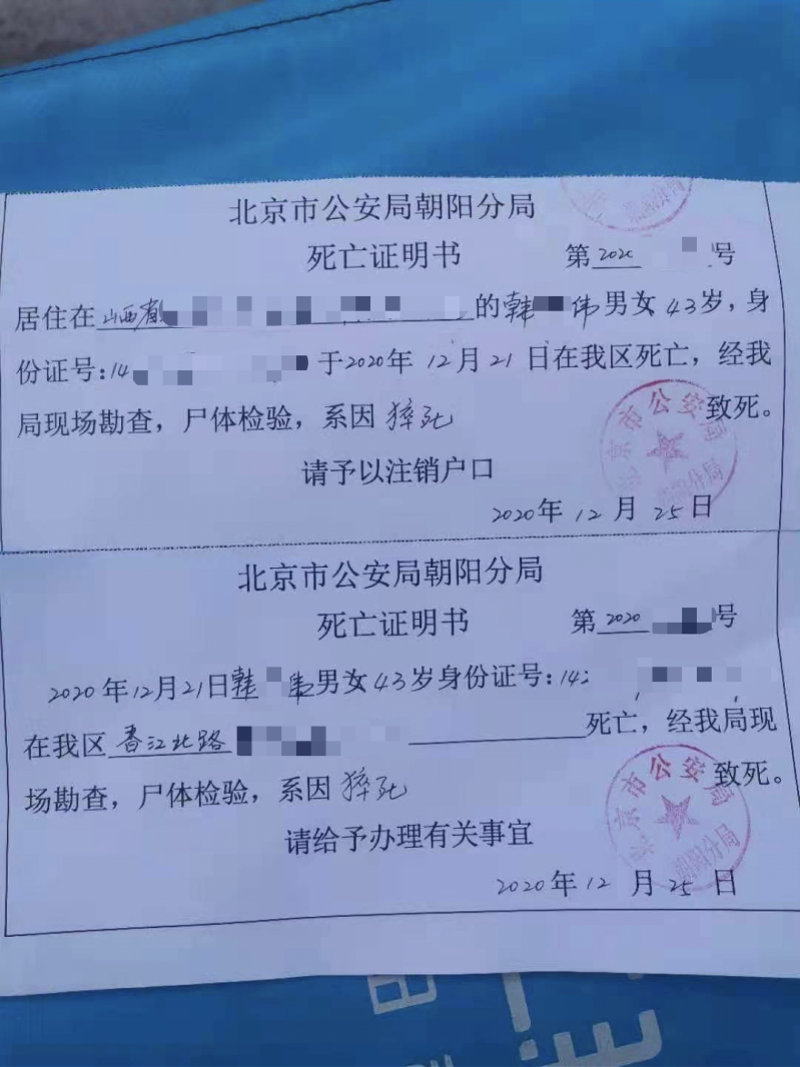 北京市公安局朝阳分局
死亡证明书 第2020 号
居住在山西省 的韩 伟男女43岁，身
份证号:14 于2020年12月21日在我区死亡，经我
局现场勘查，尸体检验，系因猝死致死。
请予以注销户口
2020年12月25日
北京市公安局朝阳分局
死亡证明书 第2020 号
2020年12月21日韩 伟男女43岁身份证号:14
在我区香江北路 死亡，经我局现
场勘查，尸体检验，系因猝死致死。
请给予办理有关事宜
2020年12月25日
北京市公安局
北京市公安局
朝阳分局